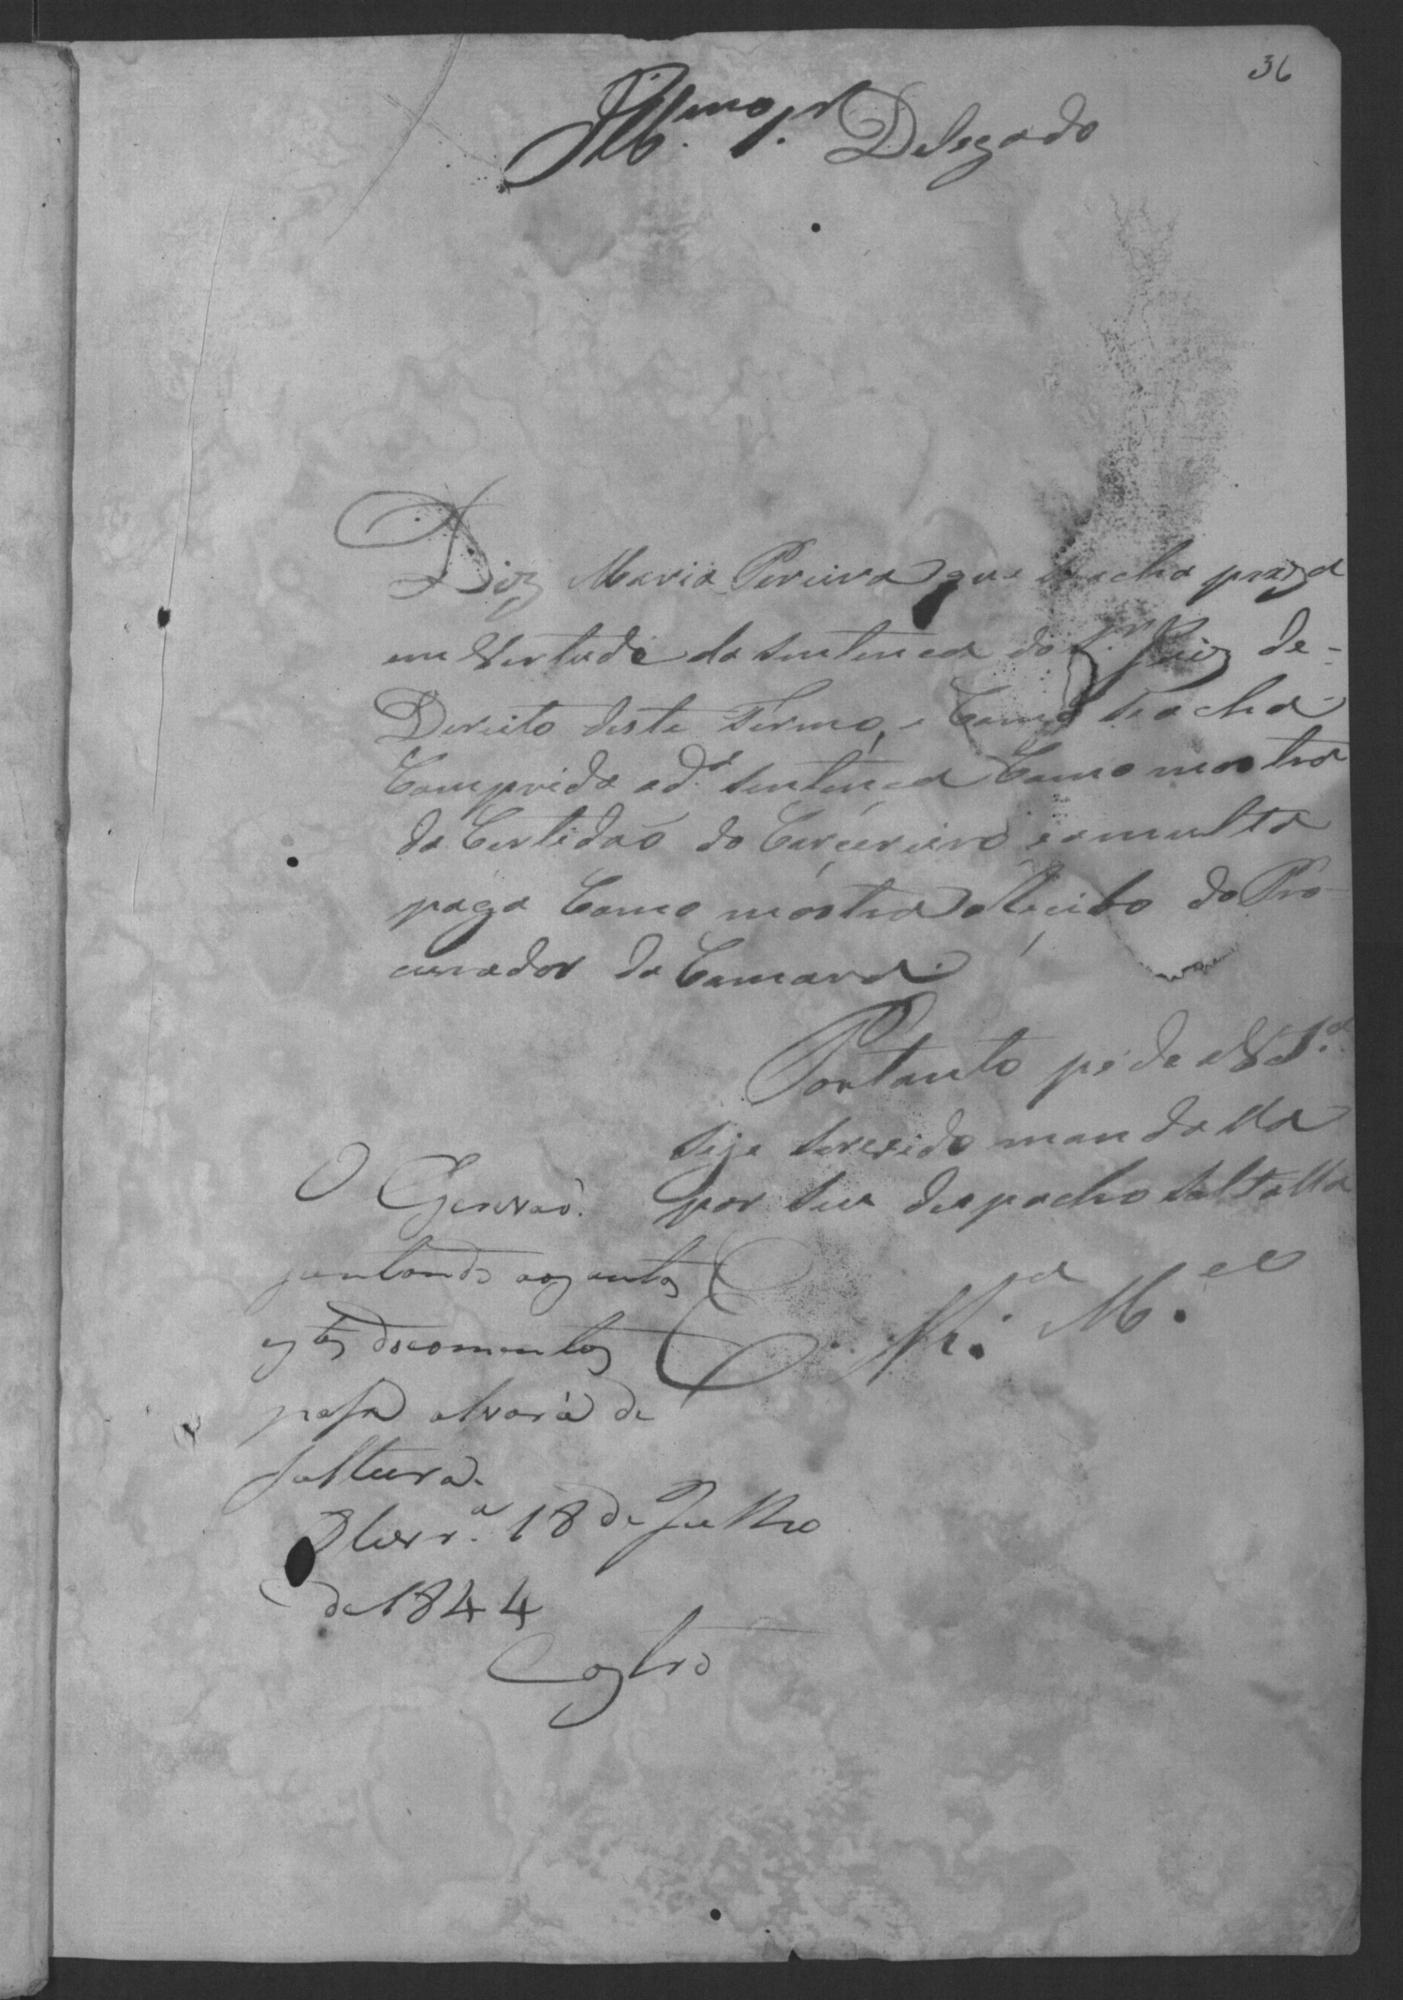 36
Illmo. Sr. Delegado
Diz Maria Pereira que se acha preza
em Vertude da sentenca do Sr. Juiz de
Dereito deste Termo, e Como se acha
Comprida a d.ª sentenca Como mostra
da Certidaõ do Carcereiro e a multa
paga Como mostra o Recibo do Pro-
curador da Camara.
Portanto pede a V. S.ª
seja servido mandalla
por seu despacho saltalla
E. R. M.ce
O Escrvaõ.
juntando aos autos
estes documentos
passe alvará de
saltura.
18 de Julho
de 1844
Castro